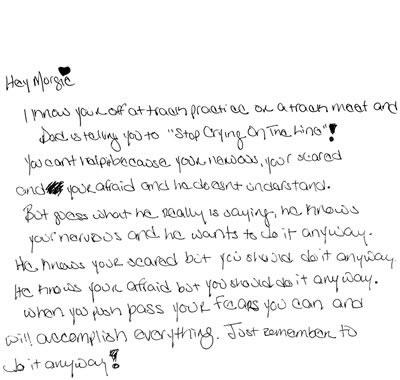 Hey Morgie
I know your off at track practice or a track meet and
Dad is telling you to "Stop Crying On The Line"!
You cant help because your nervous, your scared
and your afraid and he doesnt understand.
But guess what he really is saying, he knows
your nervous and he wants to do it anyway.
He knows your scared but you should do it anyway
He knows your afraid but you should do it anyway.
When you push pass your fears you can and
will accomplish everything. Just remember to
do it anyway!